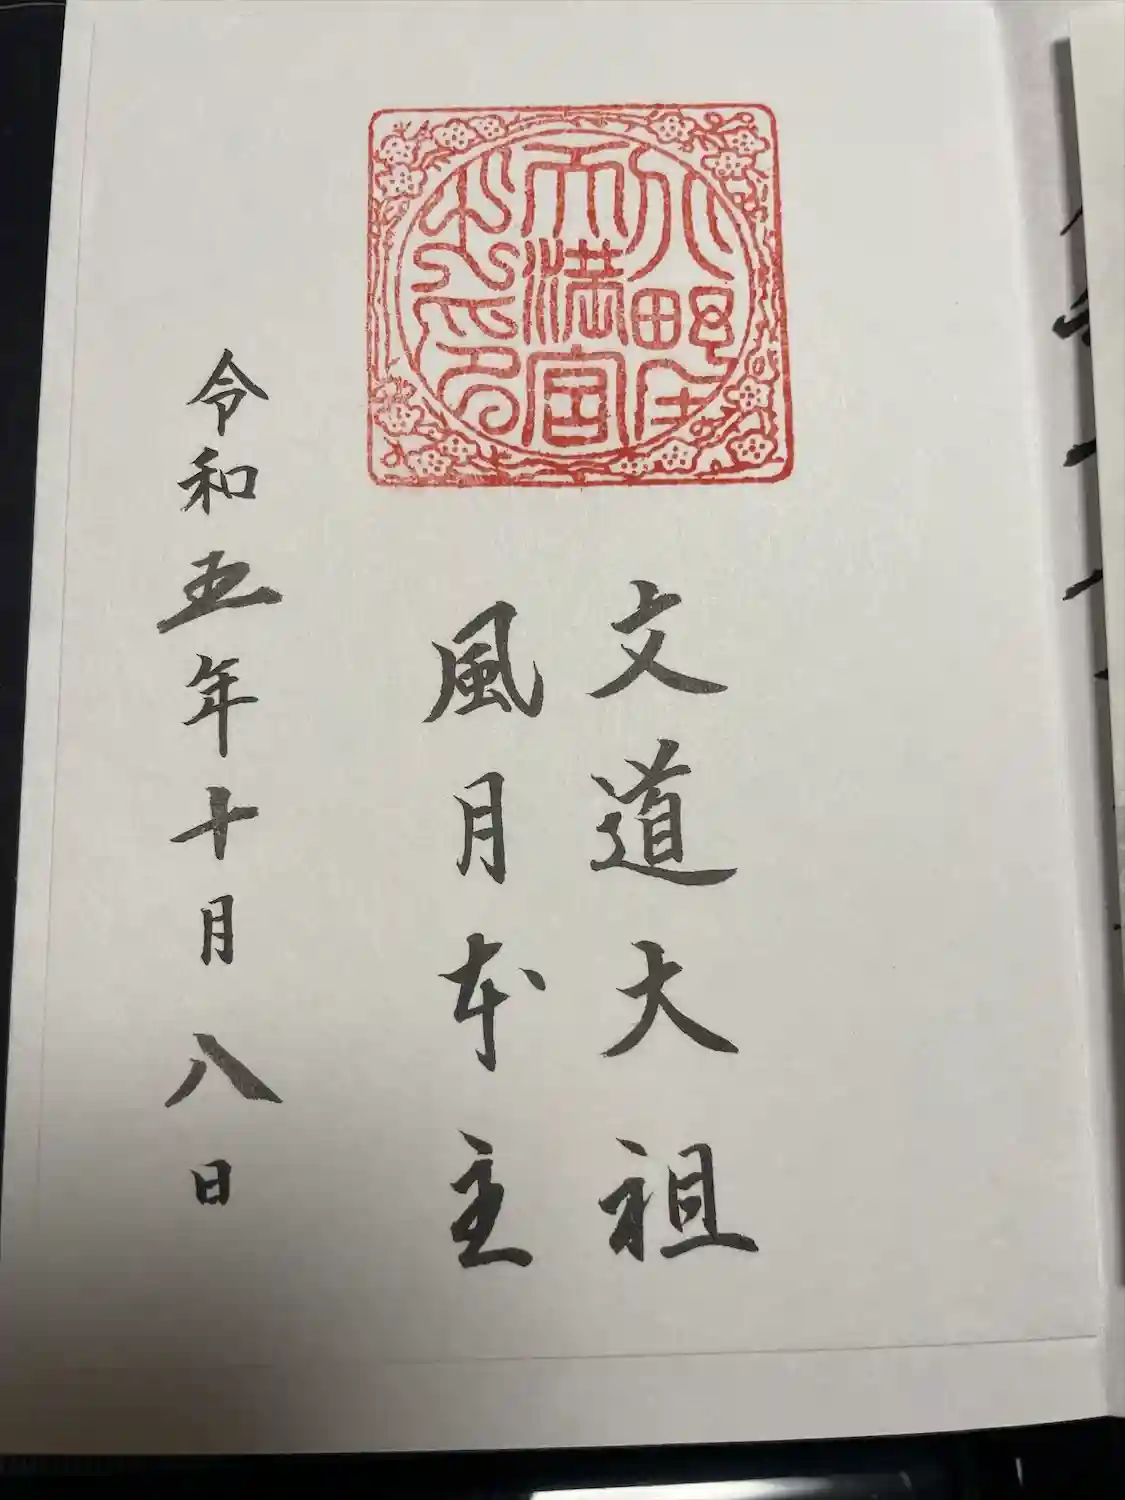 天満宮
文道大祖
風月本主
令和五年十月八日